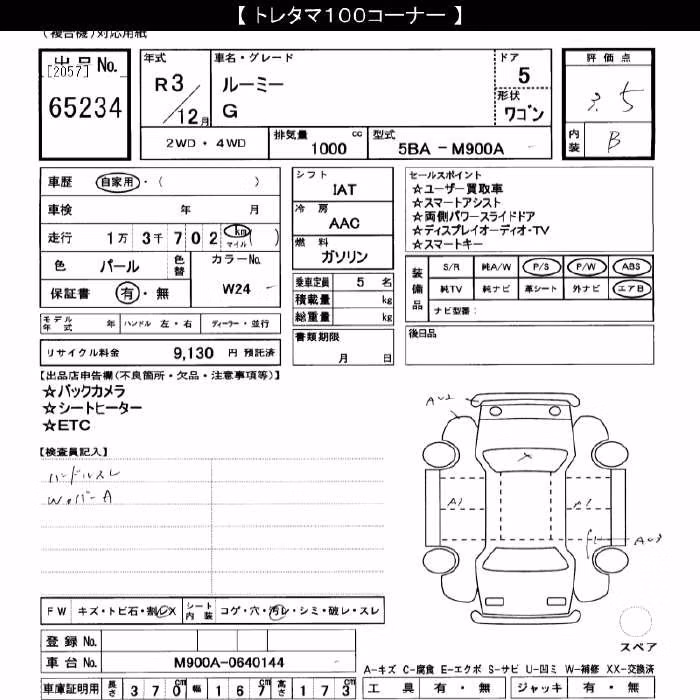 【 トレタマ100コーナー 】
(複合機)対応用紙
出品 No.
[2057]
65234
年式
R3/12月
車名・グレード
ルーミー
G
ドア
5
形状
ワゴン
2WD・4WD
排気量 cc
1000
型式
5BA－M900A
評価点
3.5
内装
B
車歴 自家用・( )
車検 年 月
走行 1万 3千 702 km マイル ( )
色 パール 色替 カラーNo.
W24
保証書 有・無
モデル年式 年 ハンドル 左・右 ディーラー・並行
リサイクル料金 9,130 円 預託済
シフト
IAT
冷房
AAC
燃料
ガソリン
乗車定員 5 名
積載量 kg
総重量 kg
書類期限
月 日
セールスポイント
☆ユーザー買取車
☆スマートアシスト
☆両側パワースライドドア
☆ディスプレイオーディオ・TV
☆スマートキー
装備品
S/R 純A/W P/S P/W ABS
純TV 純ナビ 革シート 外ナビ エアB
ナビ型番:
後日品
【出品店申告欄(不良箇所・欠品・注意事項等)】
☆バックカメラ
☆シートヒーター
☆ETC
【検査員記入】
ハンドルスレ
WペパーA
AU2
X
A1
A1
AU3
FW キズ・トビ石・割レX シート内装 コゲ・穴・汚レ・シミ・破レ・スレ
スペア
登録 No.
車台 No. M900A-0640144
A-キズ C-腐食 E-エクボ S-サビ U-凹ミ W-補修 XX-交換済
車庫証明用 長さ 370cm 幅 167cm 高さ 173cm
工具 有・無 ジャッキ 有・無